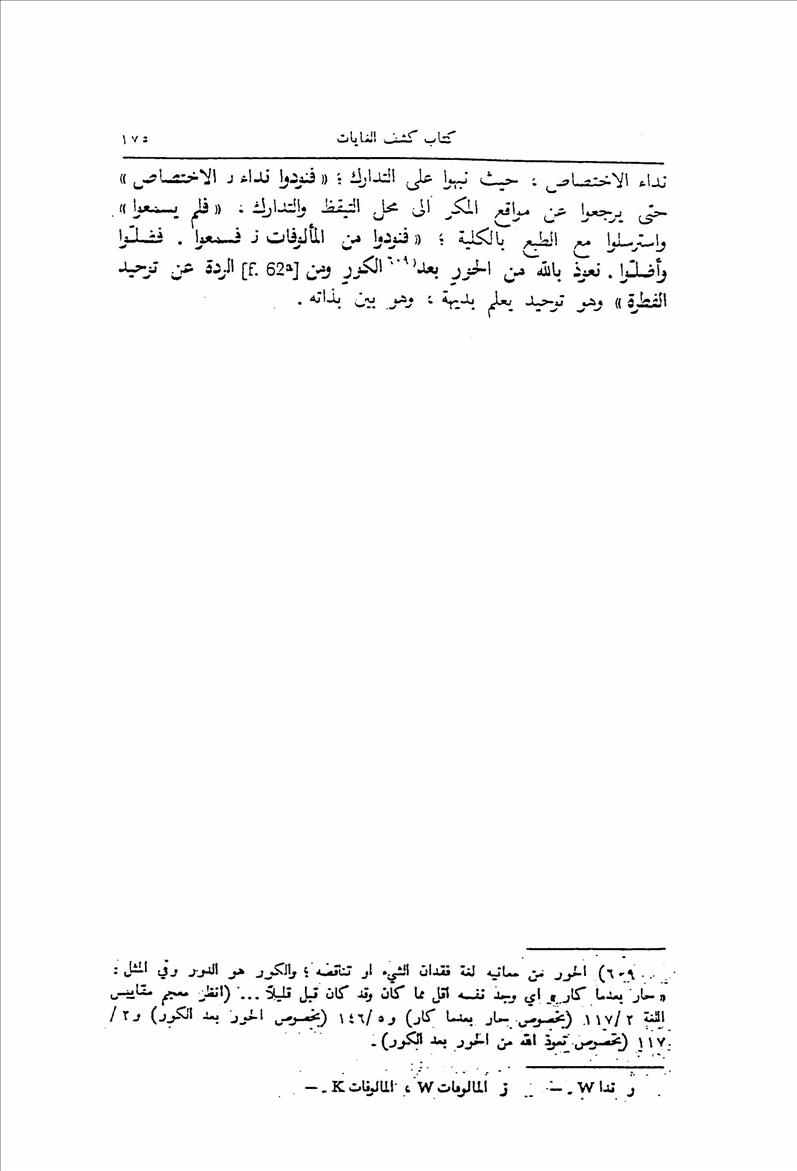 ١٧٥ كتاب كشف الغايات
نداء الاختصاص ؛ حيث نبهوا على التدارك ؛ « فنودوا نداء ر الاختصاص »
حتى يرجعوا عن مواقع المكر الى محل التيقظ والتدارك . « فلم يسمعوا »
واسترسلوا مع الطبع بالكلية ؛ « فنودوا من المألوفات ز فسمعوا . فضلّوا
وأضلّوا . نعوذ بالله من الحور بعد٦٠٩) الكور ومن [f. 62a] الردة عن توحيد
الفطرة » وهو توحيد يعلم بديهة ؛ وهو بين بذاته .
٦٠٩) الحور من معانيه لغة فقدان الشيء او تناقصه ؛ والكور هو الدور وفي المثل :
« حار بعدما كار » اي وجد نفسه أقل مما كان وقد كان قبل قليلاً ... (انظر معجم مقاييس
اللغة ٢/١١٧ (بخصوص حار بعدما كار) و ٥/١٤٦ (بخصوص الحور بعد الكور) و ٢/
١١٧ (بخصوص تعوذ الله من الحور بعد الكور) .
ر ندا W . — ز المالوفات W ، المالوفات K . —